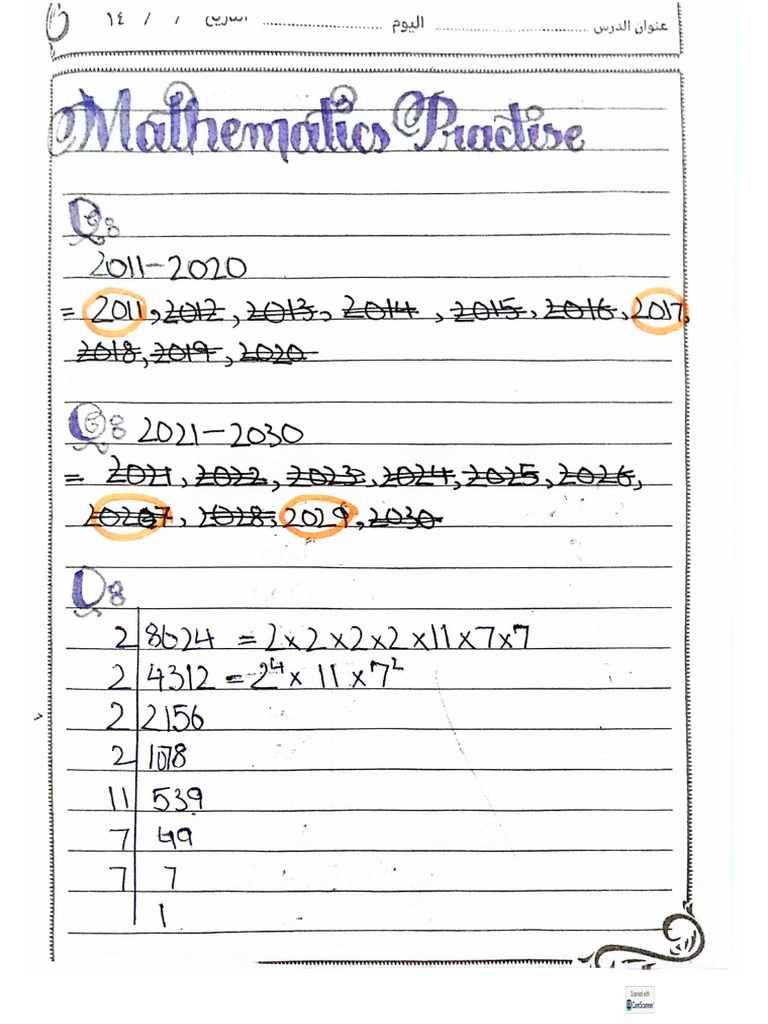 عنوان الدرس ........ اليوم ........ التاريخ / / ١٤
Mathematics Practise
Q8
2011-2020
= 2011, 2012, 2013, 2014, 2015, 2016, 2017,
2018, 2019, 2020
Q8 2021-2030
= 2021, 2022, 2023, 2024, 2025, 2026,
2027, 2028, 2029, 2030
Q8
2 8624 = 2×2×2×2×11×7×7
2 4312 = 2⁴× 11 ×7²
2 2156
2 1078
11 539
7 49
7 7
1
Scanned with
CamScanner